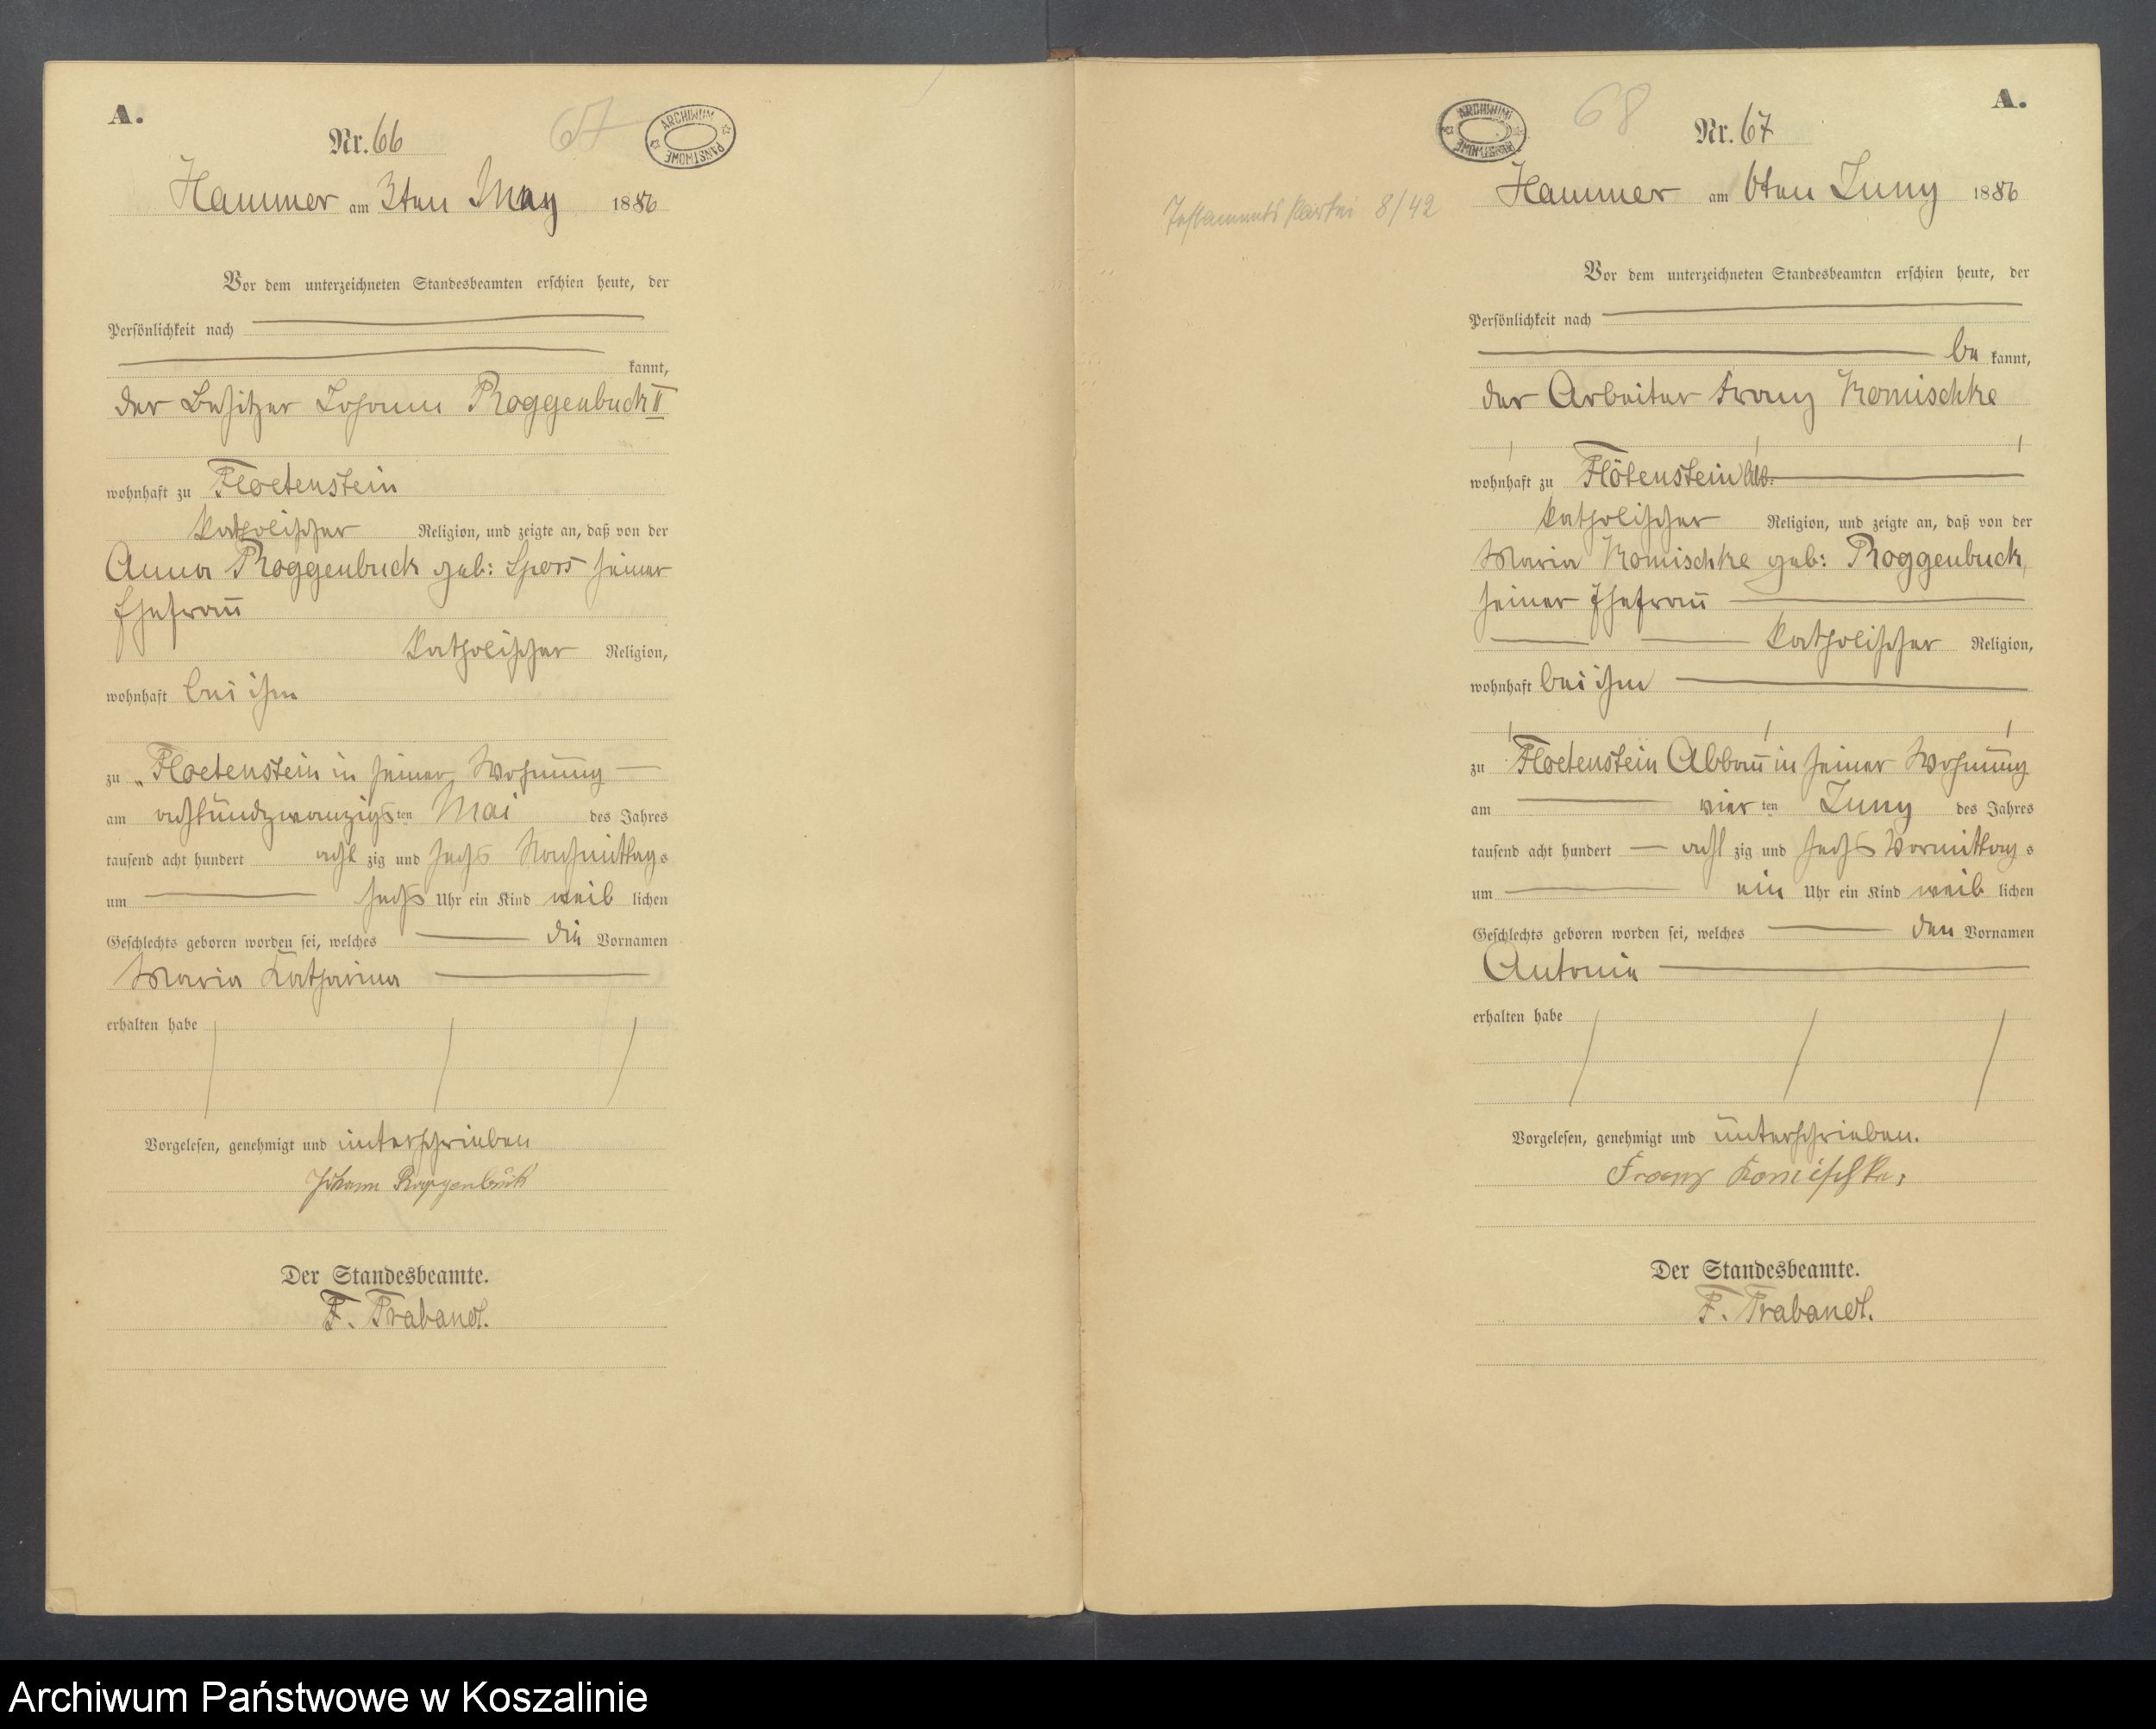 A.
Nr. 66
67
ARCHIWUM PAŃSTWOWE
Hammer am 3ten May 1886
Vor dem unterzeichneten Standesbeamten erschien heute, der
Persönlichkeit nach
kannt,
der Besitzer Johann Roggenbuck II
wohnhaft zu Floetenstein
katholischer Religion, und zeigte an, daß von der
Anna Roggenbuck geb: Spors seiner
Ehefrau
katholischer Religion,
wohnhaft bei ihm
zu Floetenstein in seiner Wohnung
am achtundzwanzigsten Mai des Jahres
tausend acht hundert acht zig und sechs Nachmittags
um sechs Uhr ein Kind weib lichen
Geschlechts geboren worden sei, welches die Vornamen
Maria Katharina
erhalten habe
Vorgelesen, genehmigt und unterschrieben
Johann Roggenbuck
Der Standesbeamte.
F. Trabandt.
A.
Nr. 67
68
ARCHIWUM PAŃSTWOWE
Testaments Kartei 8/42
Hammer am 6ten Juny 1886
Vor dem unterzeichneten Standesbeamten erschien heute, der
Persönlichkeit nach
be kannt,
der Arbeiter Franz Komischke
wohnhaft zu Flötenstein Abb.
katholischer Religion, und zeigte an, daß von der
Maria Komischke geb: Roggenbuck,
seiner Ehefrau
katholischer Religion,
wohnhaft bei ihm
zu Floetenstein Abbau in seiner Wohnung
am vier ten Juny des Jahres
tausend acht hundert acht zig und sechs Vormittag s
um ein Uhr ein Kind weib lichen
Geschlechts geboren worden sei, welches den Vornamen
Antonie
erhalten habe
Vorgelesen, genehmigt und unterschrieben.
Franz Komischke
Der Standesbeamte.
F. Trabandt.
Archiwum Państwowe w Koszalinie